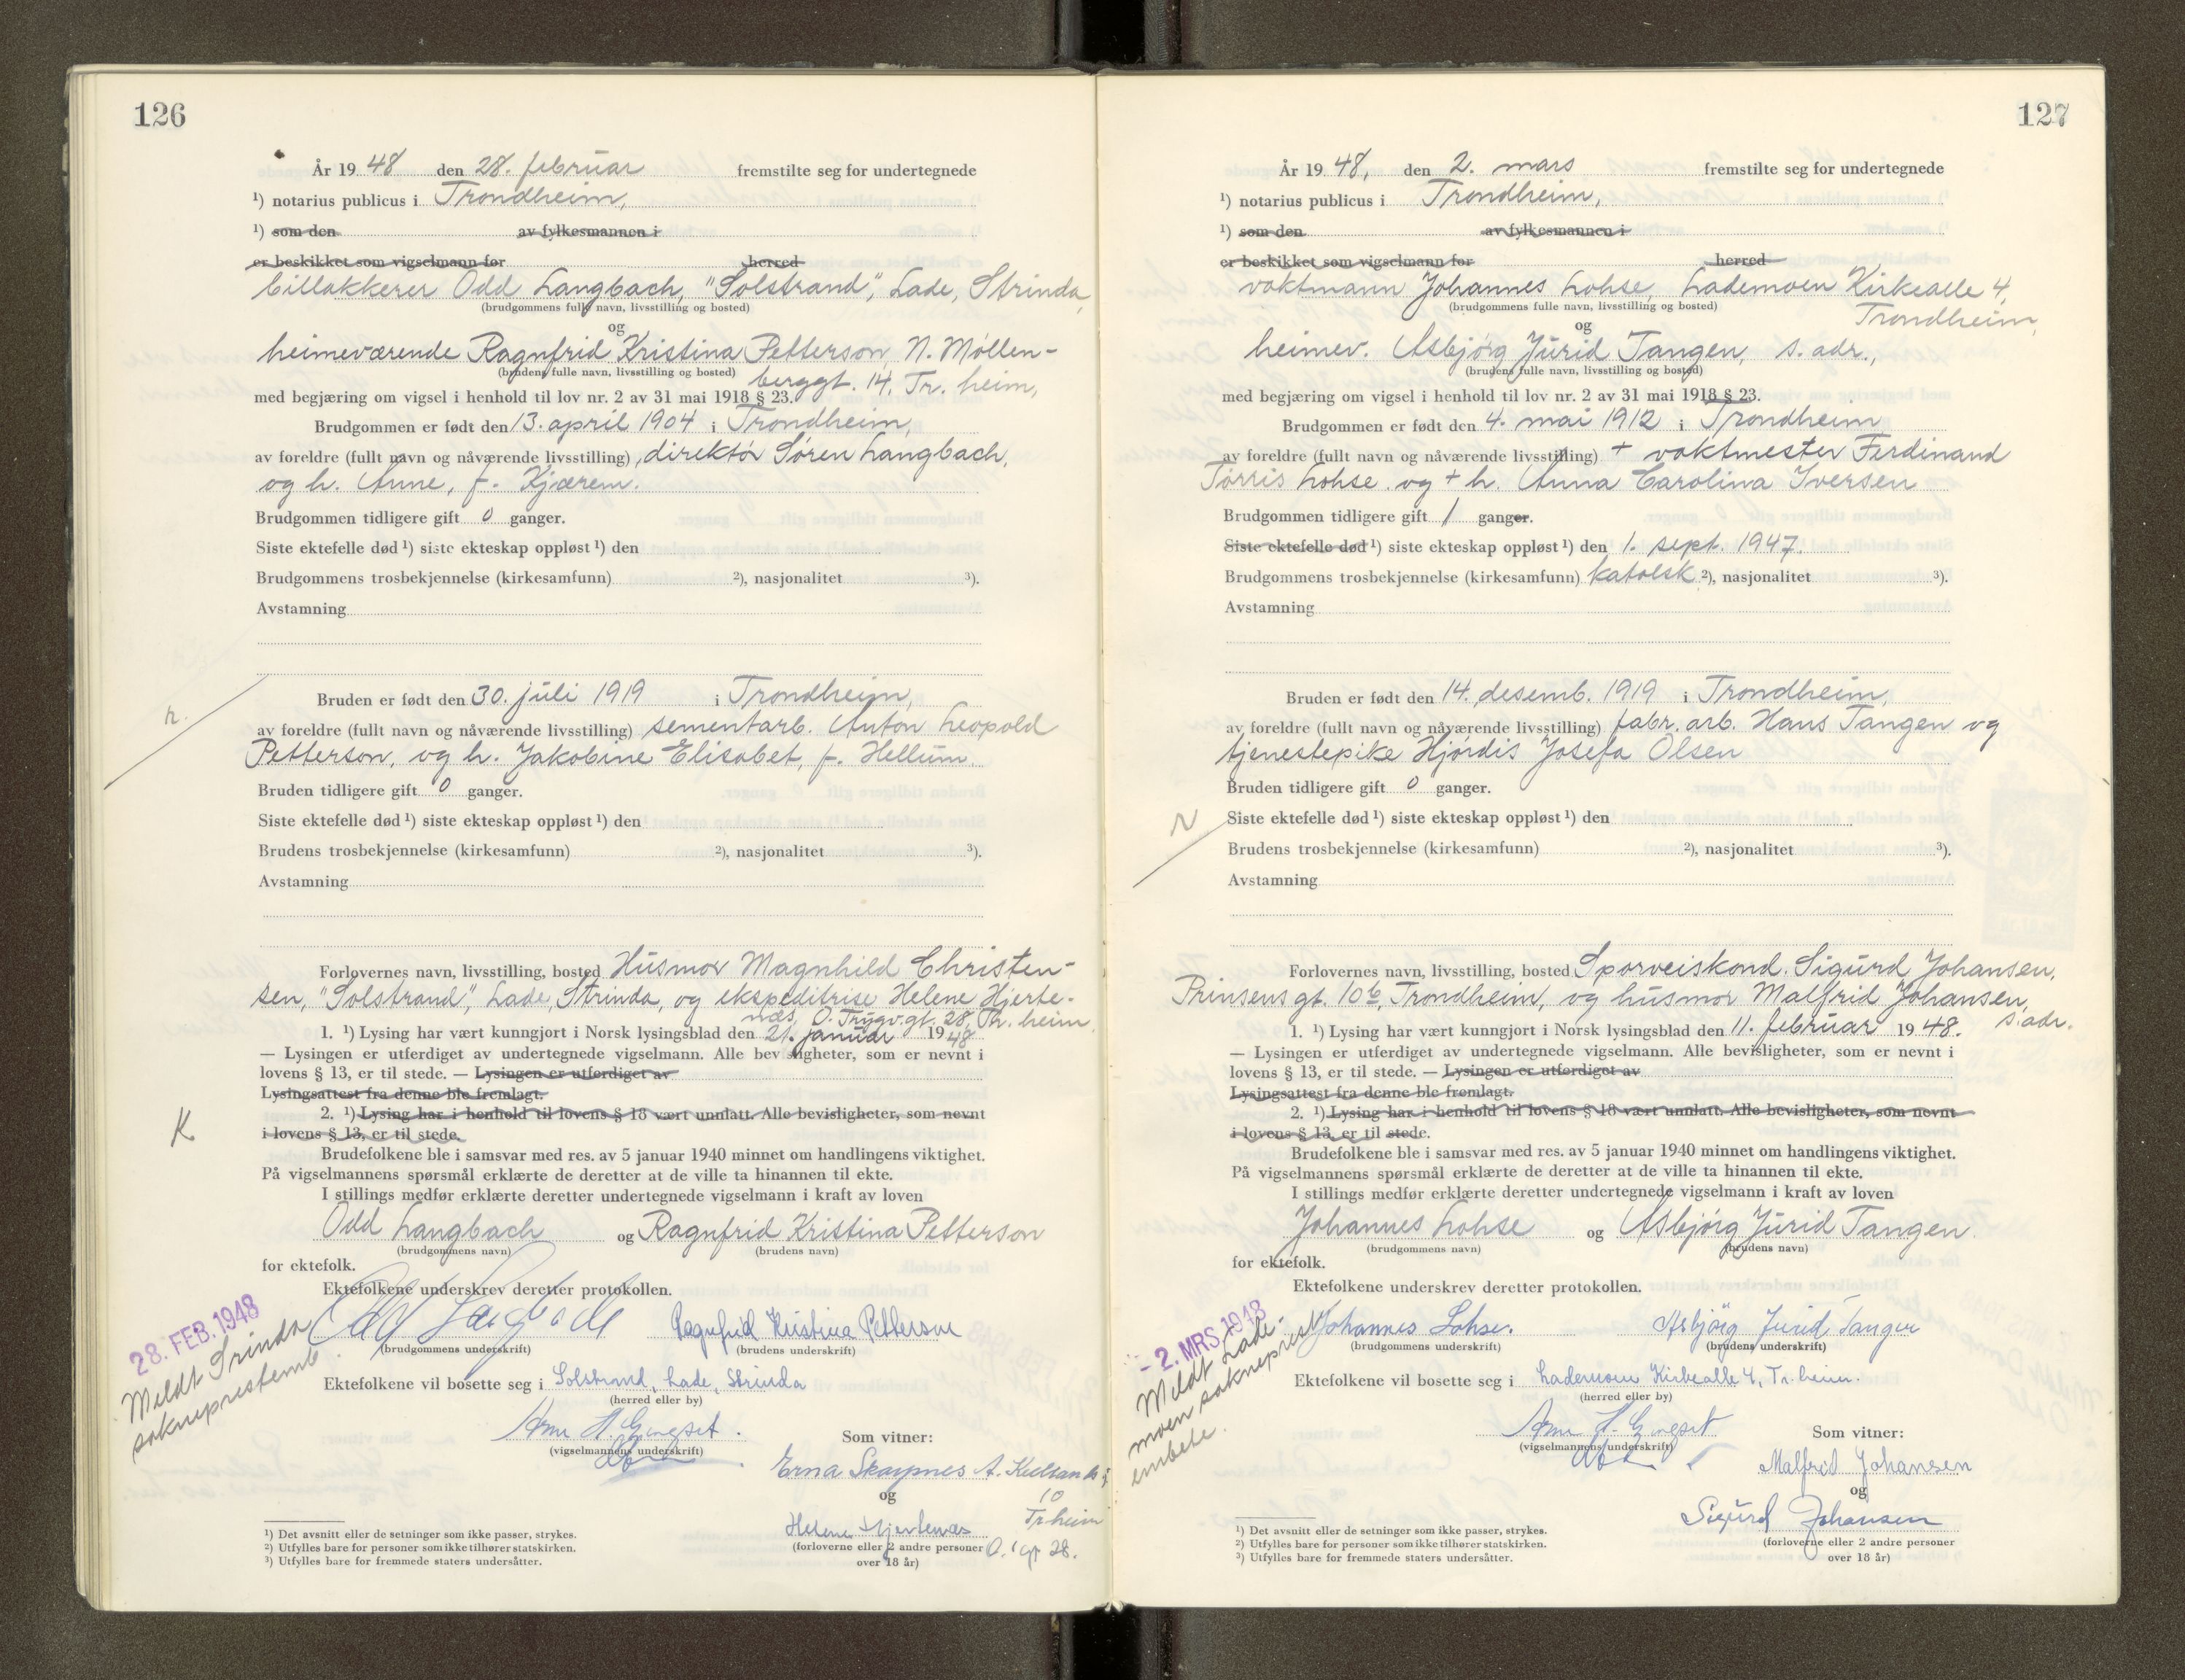 126
År 19 48 den 28. februar fremstilte seg for undertegnede
¹) notarius publicus i Trondheim,
¹) som den av fylkesmannen i
er beskikket som vigselmann for herred
billakkerer Odd Langbach, "Solstrand", Lade, Strinda,
(brudgommens fulle navn, livsstilling og bosted)
og
heimeværende Ragnfrid Kristina Petterson, N. Møllen-
(brudens fulle navn, livsstilling og bosted) berggt. 14, Tr. heim,
med begjæring om vigsel i henhold til lov nr. 2 av 31 mai 1918 § 23.
Brudgommen er født den 13. april 1904 i Trondheim,
av foreldre (fullt navn og nåværende livsstilling), direktør Søren Langbach,
og h. Anne, f. Kjærem.
Brudgommen tidligere gift 0 ganger.
Siste ektefelle død ¹) siste ekteskap oppløst ¹) den
Brudgommens trosbekjennelse (kirkesamfunn) ²), nasjonalitet ³).
Avstamning
Bruden er født den 30. juli 1919 i Trondheim,
n.
av foreldre (fullt navn og nåværende livsstilling) sementarb. Anton Leopold
Petterson, og h. Jakobine Elisabet, f. Hellum.
Bruden tidligere gift 0 ganger.
Siste ektefelle død ¹) siste ekteskap oppløst ¹) den
Brudens trosbekjennelse (kirkesamfunn) ²), nasjonalitet ³).
Avstamning
Forlovernes navn, livsstilling, bosted Husmor Magnhild Christen-
sen, "Solstrand", Lade, Strinda, og ekspeditrise Helene Hjerte-
næs, O. Trygv.gt. 28, Tr. heim.
1. ¹) Lysing har vært kunngjort i Norsk lysingsblad den 21. januar 19 48
— Lysingen er utferdiget av undertegnede vigselmann. Alle bevisligheter, som er nevnt i
lovens § 13, er til stede. — Lysingen er utferdiget av
Lysingsattest fra denne ble fremlagt.
2. ¹) Lysing har i henhold til lovens § 18 vært unnlatt. Alle bevisligheter, som nevnt
K
i lovens § 13, er til stede.
Brudefolkene ble i samsvar med res. av 5 januar 1940 minnet om handlingens viktighet.
På vigselmannens spørsmål erklærte de deretter at de ville ta hinannen til ekte.
I stillings medfør erklærte deretter undertegnede vigselmann i kraft av loven
Odd Langbach og Ragnfrid Kristina Petterson
(brudgommens navn) (brudens navn)
for ektefolk.
Ektefolkene underskrev deretter protokollen.
28. FEB. 1948
Meldt Srinda
sokneprestemb.
Odd Langbach Ragnfrid Kristina Petterson
(brudgommens underskrift) (brudens underskrift)
Ektefolkene vil bosette seg i Solstrand, Lade, Strinda
(herred eller by)
(vigselmannens underskrift)
Som vitner:
Erna Skarpnes
10
Tr.heim
og
Helene Hjertenæs
(forloverne eller 2 andre personer
over 18 år)
28.
¹) Det avsnitt eller de setninger som ikke passer, strykes.
²) Utfylles bare for personer som ikke tilhører statskirken.
³) Utfylles bare for fremmede staters undersåtter.
127
År 19 48, den 2. mars fremstilte seg for undertegnede
¹) notarius publicus i Trondheim,
¹) som den av fylkesmannen i
er beskikket som vigselmann for herred
vaktmann Johannes Lohse, Lademoen Kirkealle 4,
(brudgommens fulle navn, livsstilling og bosted) Trondheim,
og
heimev. Asbjørg Jurid Tangen, s. adr.,
(brudens fulle navn, livsstilling og bosted)
med begjæring om vigsel i henhold til lov nr. 2 av 31 mai 1918 § 23.
Brudgommen er født den 4. mai 1912 i Trondheim
av foreldre (fullt navn og nåværende livsstilling) + vaktmester Ferdinand
Tørris Lohse og + h. Anna Carolina Iversen
Brudgommen tidligere gift 1 ganger.
Siste ektefelle død ¹) siste ekteskap oppløst ¹) den 1. sept. 1947.
Brudgommens trosbekjennelse (kirkesamfunn) katolsk ²), nasjonalitet ³).
Avstamning
Bruden er født den 14. desemb. 1919 i Trondheim,
av foreldre (fullt navn og nåværende livsstilling) fabr. arb. Hans Tangen og
tjenestepike Hjørdis Josefa Olsen
Bruden tidligere gift 0 ganger.
Siste ektefelle død ¹) siste ekteskap oppløst ¹) den
Brudens trosbekjennelse (kirkesamfunn) ²), nasjonalitet ³).
Avstamning
Forlovernes navn, livsstilling, bosted Sporveiskond. Sigurd Johansen,
Prinsens gt. 10b, Trondheim, og husmor Malfrid Johansen,
s. adr.
1. ¹) Lysing har vært kunngjort i Norsk lysingsblad den 11. februar 19 48.
— Lysingen er utferdiget av undertegnede vigselmann. Alle bevisligheter, som er nevnt i
lovens § 13, er til stede. — Lysingen er utferdiget av
Lysingsattest fra denne ble fremlagt.
2. ¹) Lysing har i henhold til lovens § 18 vært unnlatt. Alle bevisligheter, som nevnt
i lovens § 13, er til stede.
Brudefolkene ble i samsvar med res. av 5 januar 1940 minnet om handlingens viktighet.
På vigselmannens spørsmål erklærte de deretter at de ville ta hinannen til ekte.
I stillings medfør erklærte deretter undertegnede vigselmann i kraft av loven
Johannes Lohse og Asbjørg Jurid Tangen.
(brudgommens navn) (brudens navn)
for ektefolk.
Ektefolkene underskrev deretter protokollen.
- 2. MRS. 1948
Meldt Lade-
moen sokneprest
embete.
Johannes Lohse. Asbjörg Jurid Tangen
(brudgommens underskrift) (brudens underskrift)
Ektefolkene vil bosette seg i Lademoen Kirkealle 4, Tr.heim.
(herred eller by)
(vigselmannens underskrift)
Som vitner:
Malfrid Johansen
og
Sigurd Johansen
(forloverne eller 2 andre personer
over 18 år)
¹) Det avsnitt eller de setninger som ikke passer, strykes.
²) Utfylles bare for personer som ikke tilhører statskirken.
³) Utfylles bare for fremmede staters undersåtter.